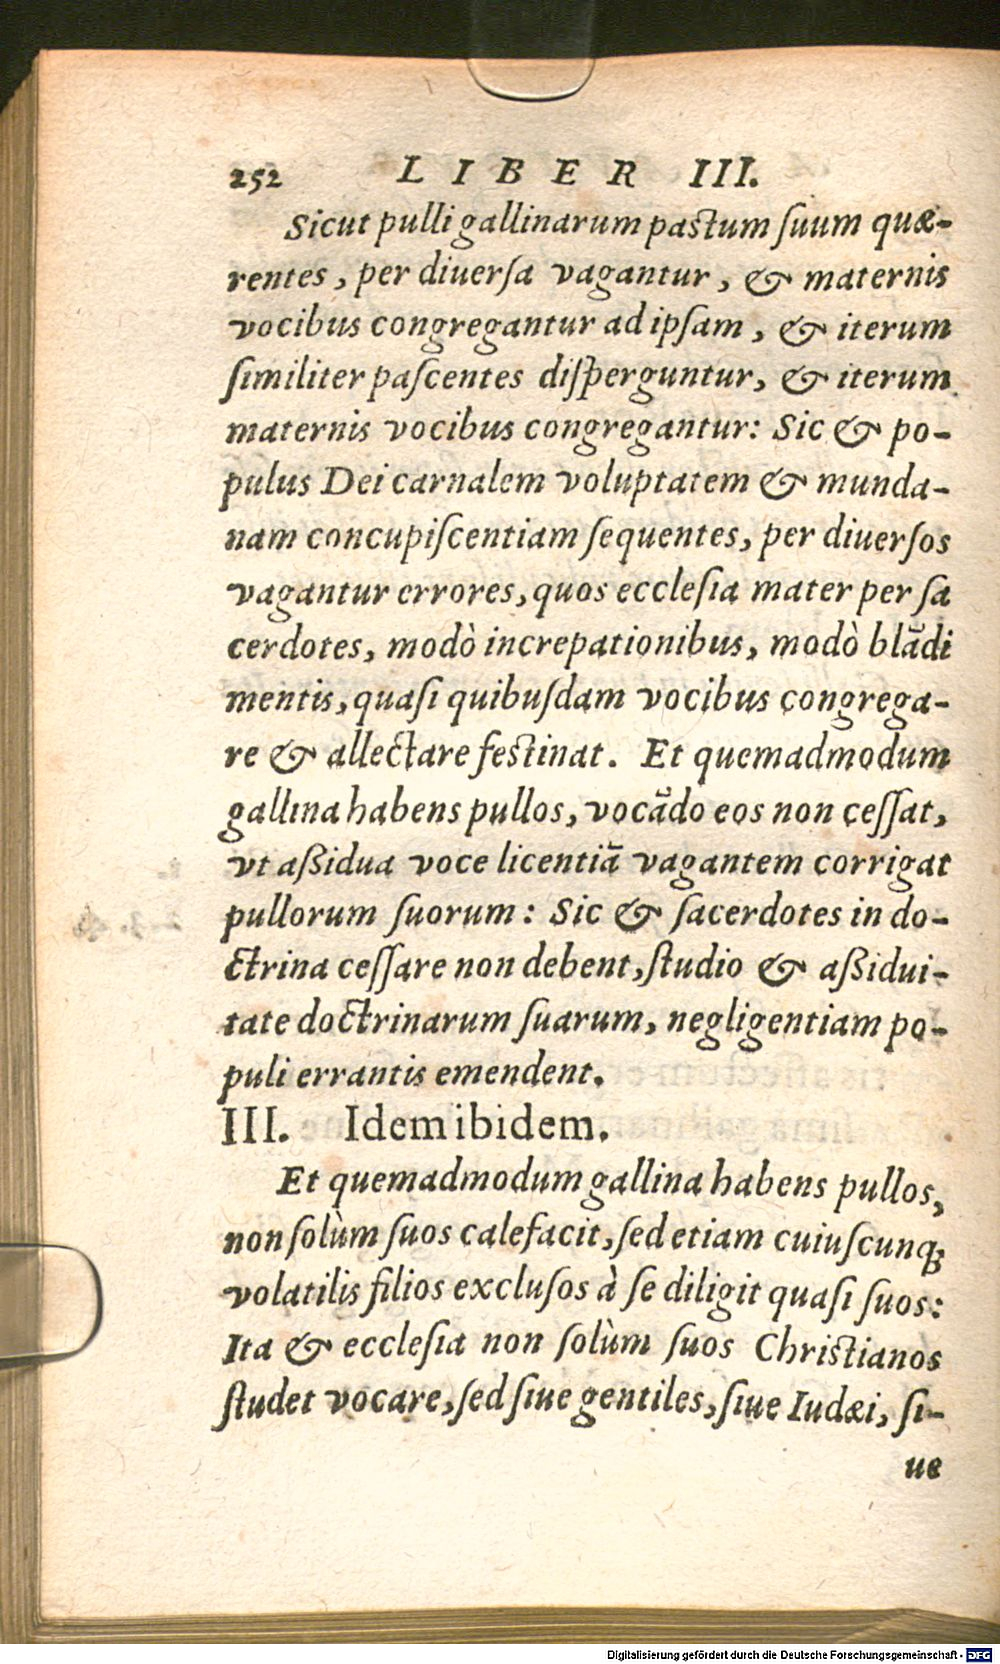 252 LIBER III.
Sicut pulli gallinarum pastum suum quæ-
rentes, per diuersa vagantur, & maternis
vocibus congregantur ad ipsam, & iterum
similiter pascentes disperguntur, & iterum
maternis vocibus congregantur: Sic & po-
pulus Dei carnalem voluptatem & munda-
nam concupiscentiam sequentes, per diuersos
vagantur errores, quos ecclesia mater per sa
cerdotes, modò increpationibus, modò blādi
mentis, quasi quibusdam vocibus congrega-
re & allectare festinat. Et quemadmodum
gallina habens pullos, vocādo eos non cessat,
vt aßidua voce licentiā vagantem corrigat
pullorum suorum: Sic & sacerdotes in do-
ctrina cessare non debent, studio & aßidui-
tate doctrinarum suarum, negligentiam po-
puli errantis emendent.
III. Idem ibidem.
Et quemadmodum gallina habens pullos,
non solùm suos calefacit, sed etiam cuiuscunq;
volatilis filios exclusos à se diligit quasi suos:
Ita & ecclesia non solùm suos Christianos
studet vocare, sed siue gentiles, siue Iudæi, si-
ue
Digitalisierung gefördert durch die Deutsche Forschungsgemeinschaft - DFG